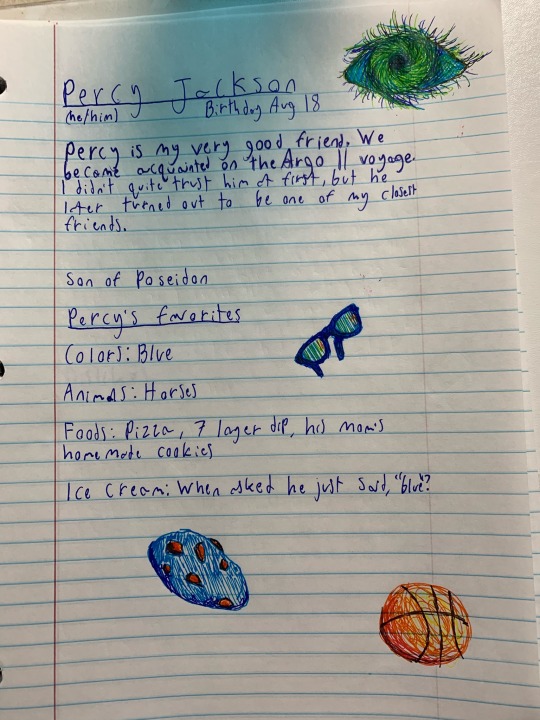 Percy Jackson
(he/him) Birthday Aug 18
Percy is my very good friend. We
become acquainted on the Argo II voyage.
I didn't quite trust him at first, but he
later turned out to be one of my closest
friends.
Son of Poseidon
Percy's favorites
Colors: Blue
Animals: Horses
Foods: Pizza, 7 layer dip, his mom's
homemade cookies
Ice Cream: When asked he just said, "blue"?